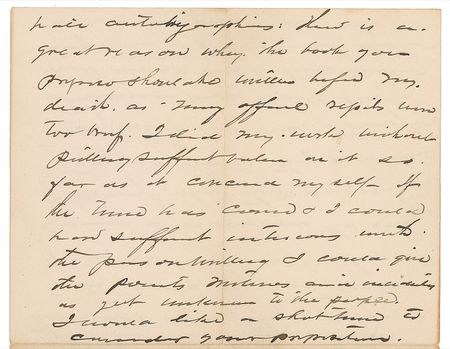 hate autobiographies: There is a
great reason why the book you
propose should be written before my
death. as my official reports were
too brief. I did my work without
putting sufficient value on it so
far as it concerned myself. If
the time has come & I could
have sufficient interviews with
the person writing I could give
the points motives and incidents
as yet unknown to the people
I would like a short time to
consider your proposition.